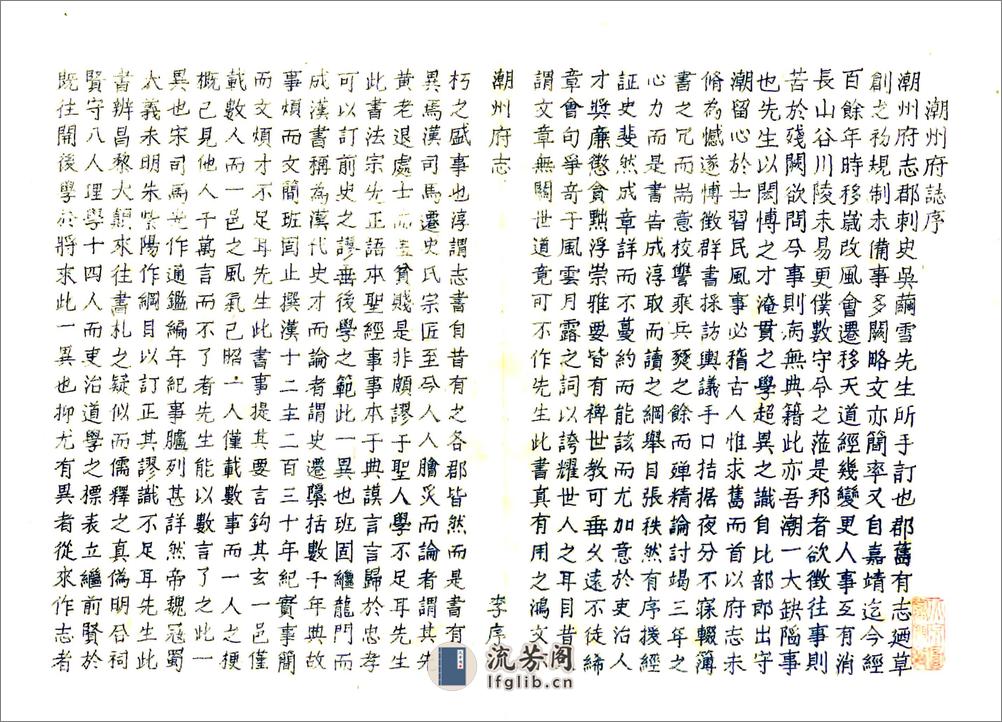 潮州府誌序
潮州府志郡刺史吳繭雪先生所手訂也郡舊有志廼草
創之初規制未備事多闕略文亦簡率又自嘉靖迄今經
百餘年時移歲改風會遷移天道經幾變更人事互有消
長山谷川陵未易更僕數守令之蒞是邦者欲徵往事則
苦於殘闕欲問今事則病無典籍此亦吾潮一大缺陷事
也先生以閎博之才淹貫之學超異之識自比部郎出守
潮留心於士習民風事必稽古人惟求舊而首以府志未
脩為憾遂博徵群書採訪輿議手口拮据夜分不寐輟簿
書之冗而耑意校讐乘兵燹之餘而殫精論討竭三年之
心力而是書告成淳取而讀之綱舉目張秩然有序援經
証史斐然成章詳而不蔓約而能該而尤加意於吏治人
才奬廉懲貪黜浮崇雅要皆有裨世教可垂久遠不徒絺
章會句爭奇于風雲月露之詞以誇耀世人之耳目昔
謂文章無關世道竟可不作先生此書真有用之鴻文
潮州府志 李序
朽之盛事也淳謂志書自昔有之各郡皆然而是書有
異焉漢司馬遷史氏宗匠至今人人膾炙而論者謂其先
黄老退處士而羞貧賤是非頗謬于聖人學不足耳先生
此書法宗先正語本聖經事事本于典謨言言歸於忠孝
可以訂前史之謬垂後學之範此一異也班固繼龍門而
成漢書稱為漢代史才而論者謂史遷檃括數千年典故
事煩而文簡班固止撰漢十二主二百三十年紀實事簡
而文煩才不足耳先生此書事提其要言鈎其玄一邑僅
載數人而一邑之風氣已昭一人僅載數事而一人之梗
概已見他人千萬言而不了者先生能以數言了之此一
異也宋司馬光作通鑑編年紀事臚列甚詳然帝魏冦蜀
大義未明朱紫陽作綱目以訂正其謬識不足耳先生此
書辨昌黎大顛來往書札之疑似而儒釋之真僞明合祠
賢守八人理學十四人而吏治道學之標表立繼前賢於
既往開後學於將來此一異也抑尤有異者從來作志者
流芳阁
lfglib.cn